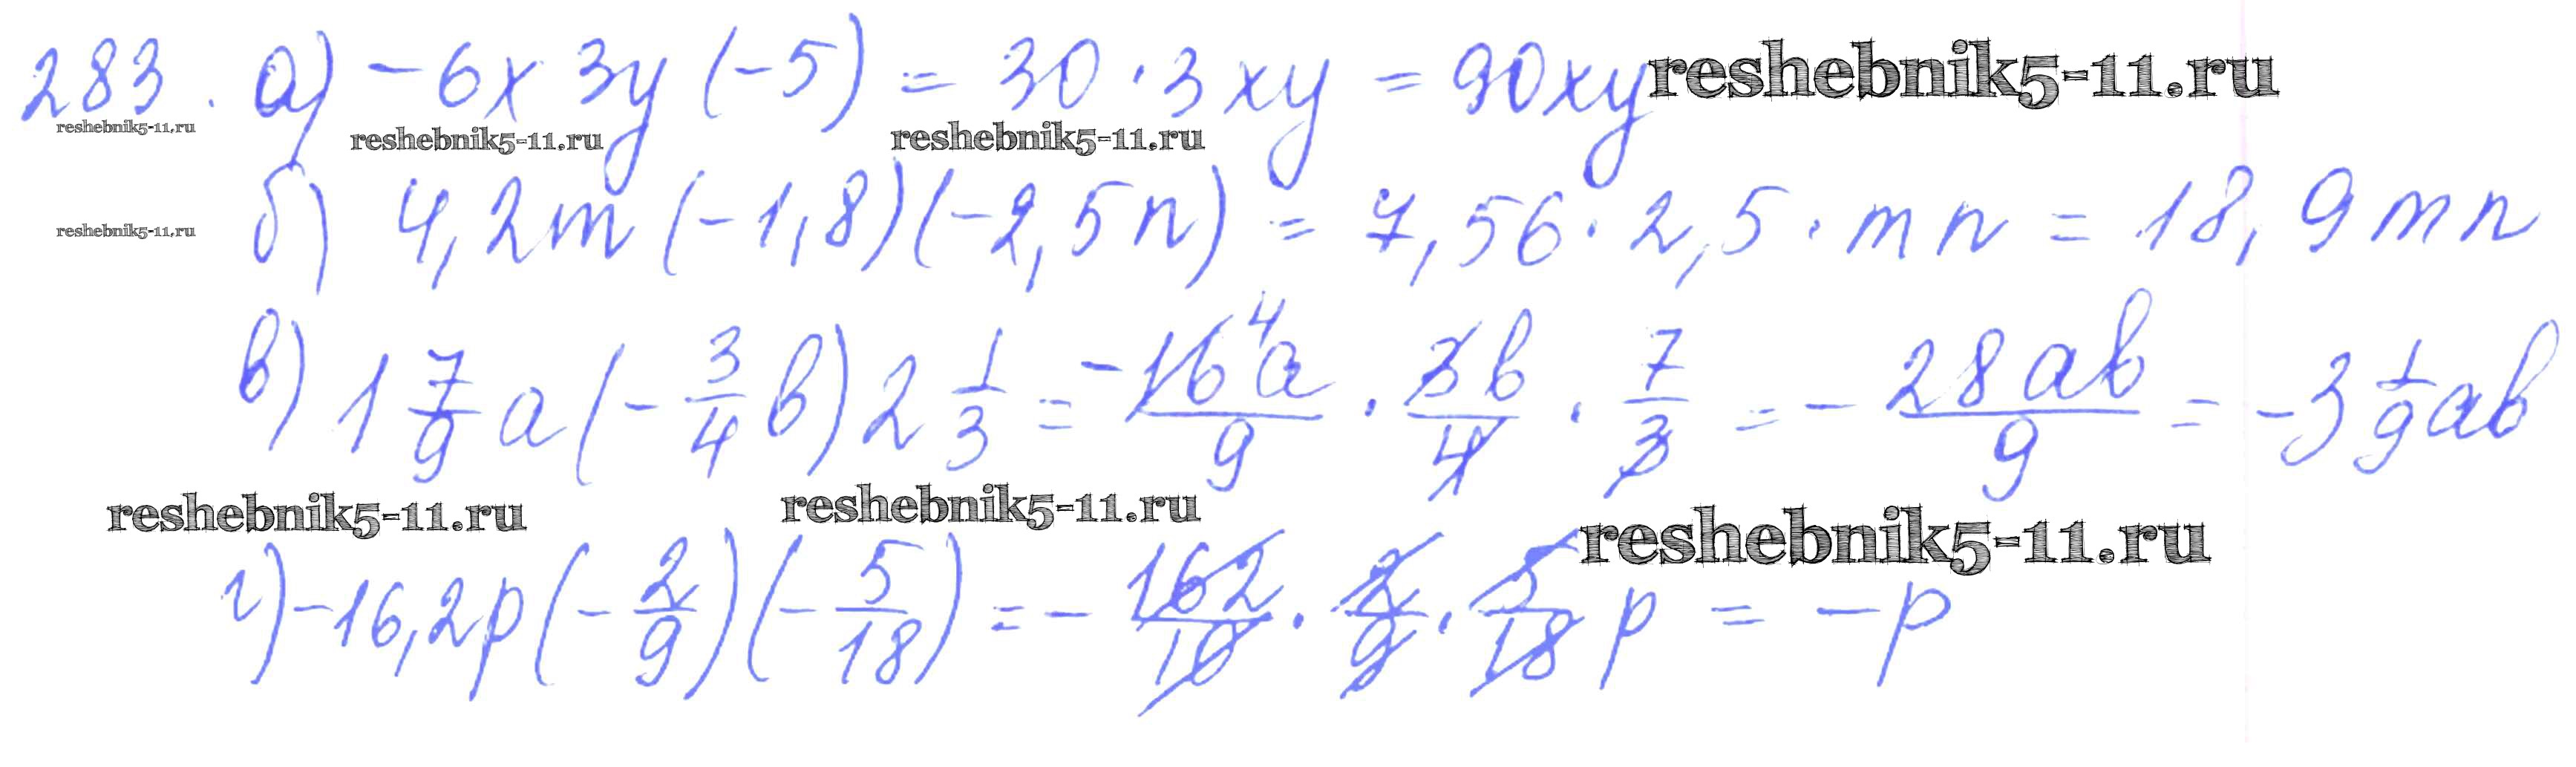 283. а) -6x 3y (-5) = 30 · 3xy = 90xy reshebnik5-11.ru
reshebnik5-11.ru reshebnik5-11.ru reshebnik5-11.ru
reshebnik5-11.ru б) 4,2m (-1,8)(-2,5n) = 7,56 · 2,5 · mn = 18,9mn
в) 1 7/9 a (- 3/4 b) 2 1/3 = - 16⁴a/9 · 3b/4 · 7/3 = - 28ab/9 = -3 1/9 ab
reshebnik5-11.ru reshebnik5-11.ru reshebnik5-11.ru
г) -16,2p (- 2/9) (- 5/18) = - 162/10 · 2/9 · 5/18 p = -p